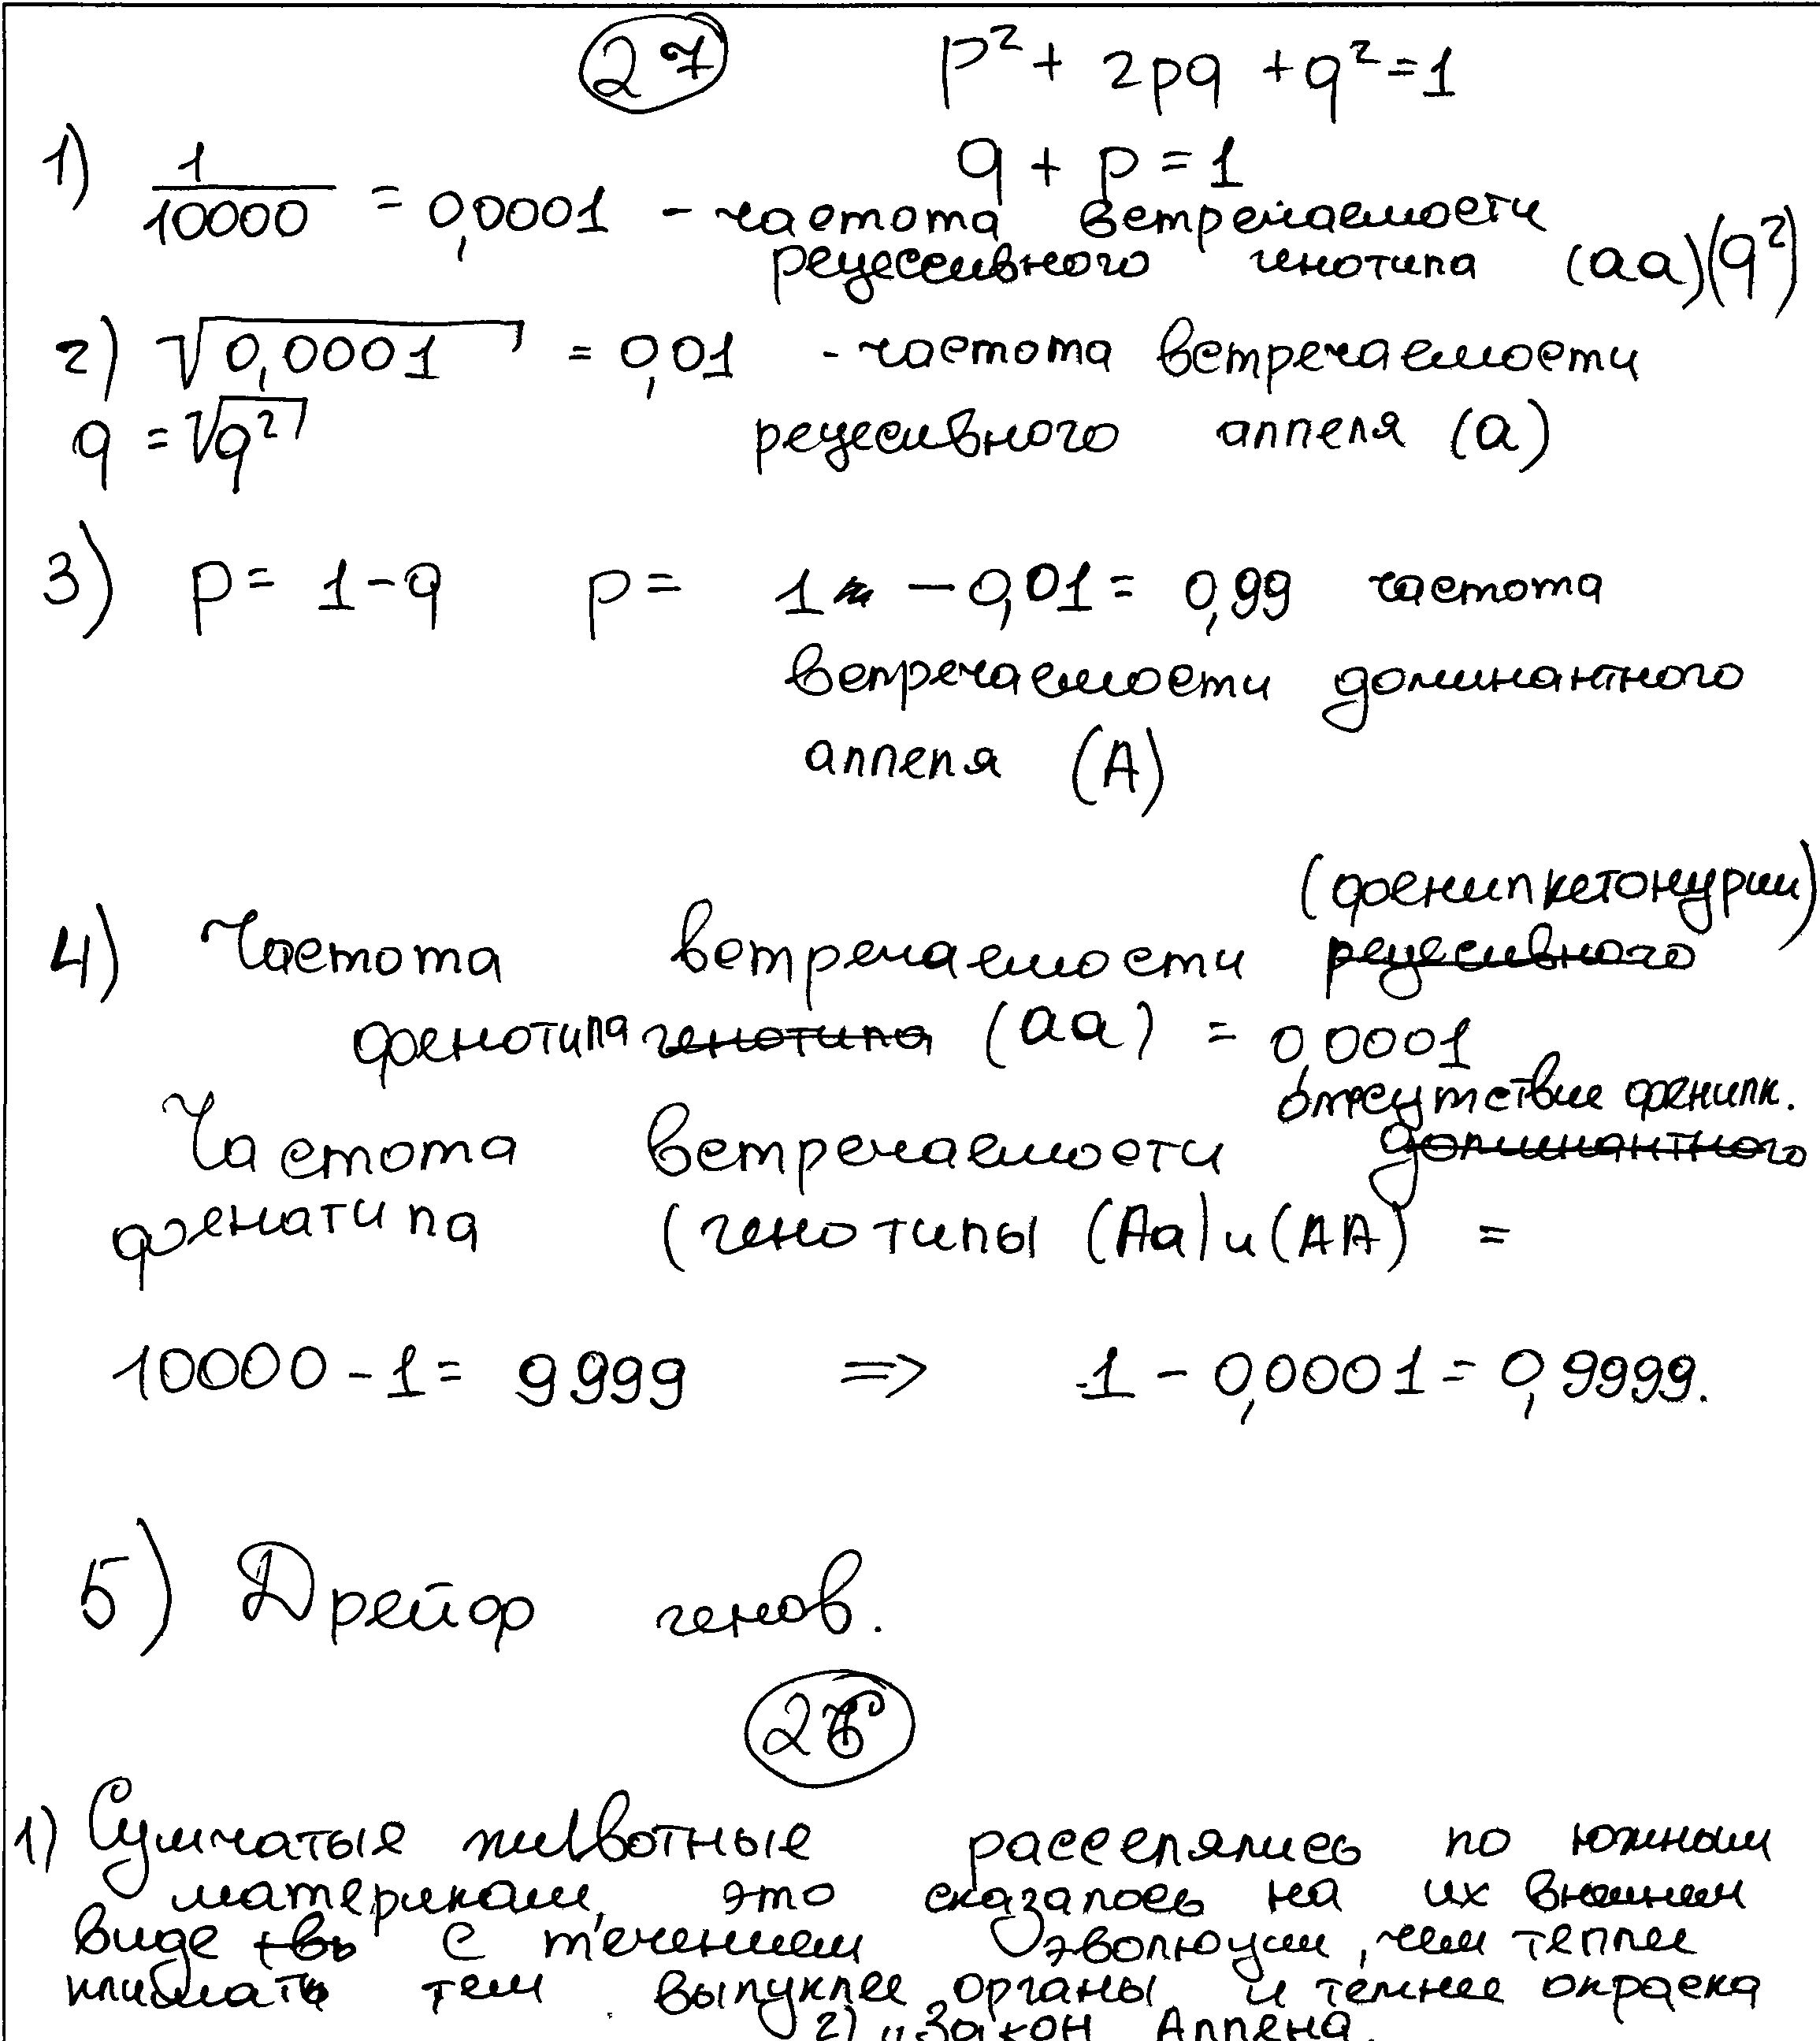 27
p² + 2pq + q² = 1
q + p = 1
1) 1/10000 = 0,0001 - частота встречаемости
рецессивного генотипа (aa)(q²)
2) √0,0001 = 0,01 - частота встречаемости
q = √q² рецесивного аллеля (a)
3) p = 1 - q p = 1 - 0,01 = 0,99 частота
встречаемости доминантного
аллеля (A)
(фенилкетонурии)
4) Частота встречаемости рецесивного
фенотипа генотипа (aa) = 0,0001
отсутствие фенилк.
Частота встречаемости доминантного
фенатипа (генотипы (Aa) и (AA) =
10000 - 1 = 9999 => 1 - 0,0001 = 0,9999.
5) Дрейф генов.
26
1) Сумчатые животные расселялись по южным
материкам, это сказалось на их внешнем
виде с течением эволюции, чем теплее
климать тем выпуклее органы и темнее окраска
2) "Закон Аллена.